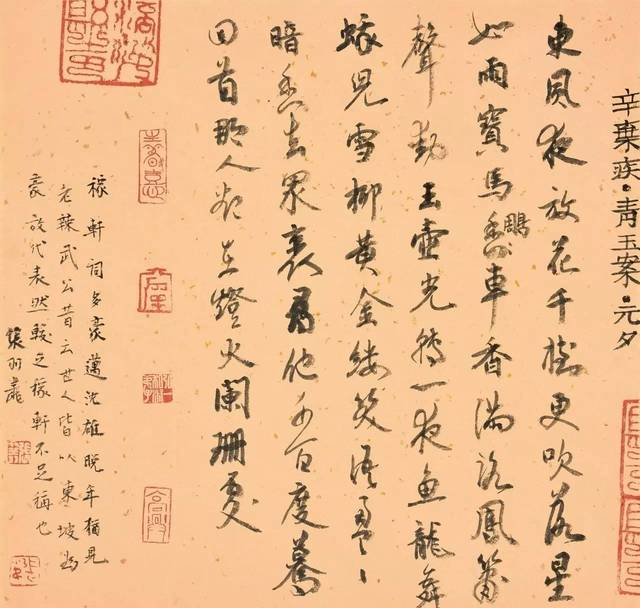 辛棄疾·青玉案·元夕
東風夜放花千樹更吹落星
如雨寶馬鵰車香滿路鳳簫
聲動玉壺光轉一夜魚龍舞
蛾兒雪柳黃金縷笑語盈〻
暗香去眾裏尋他千百度驀
回首那人卻在燈火闌珊處
稼軒詞多豪邁沈雄晚年猶見
老辣武公昔云世人皆以東坡為
豪放代表然較之稼軒不足稱也
張羽